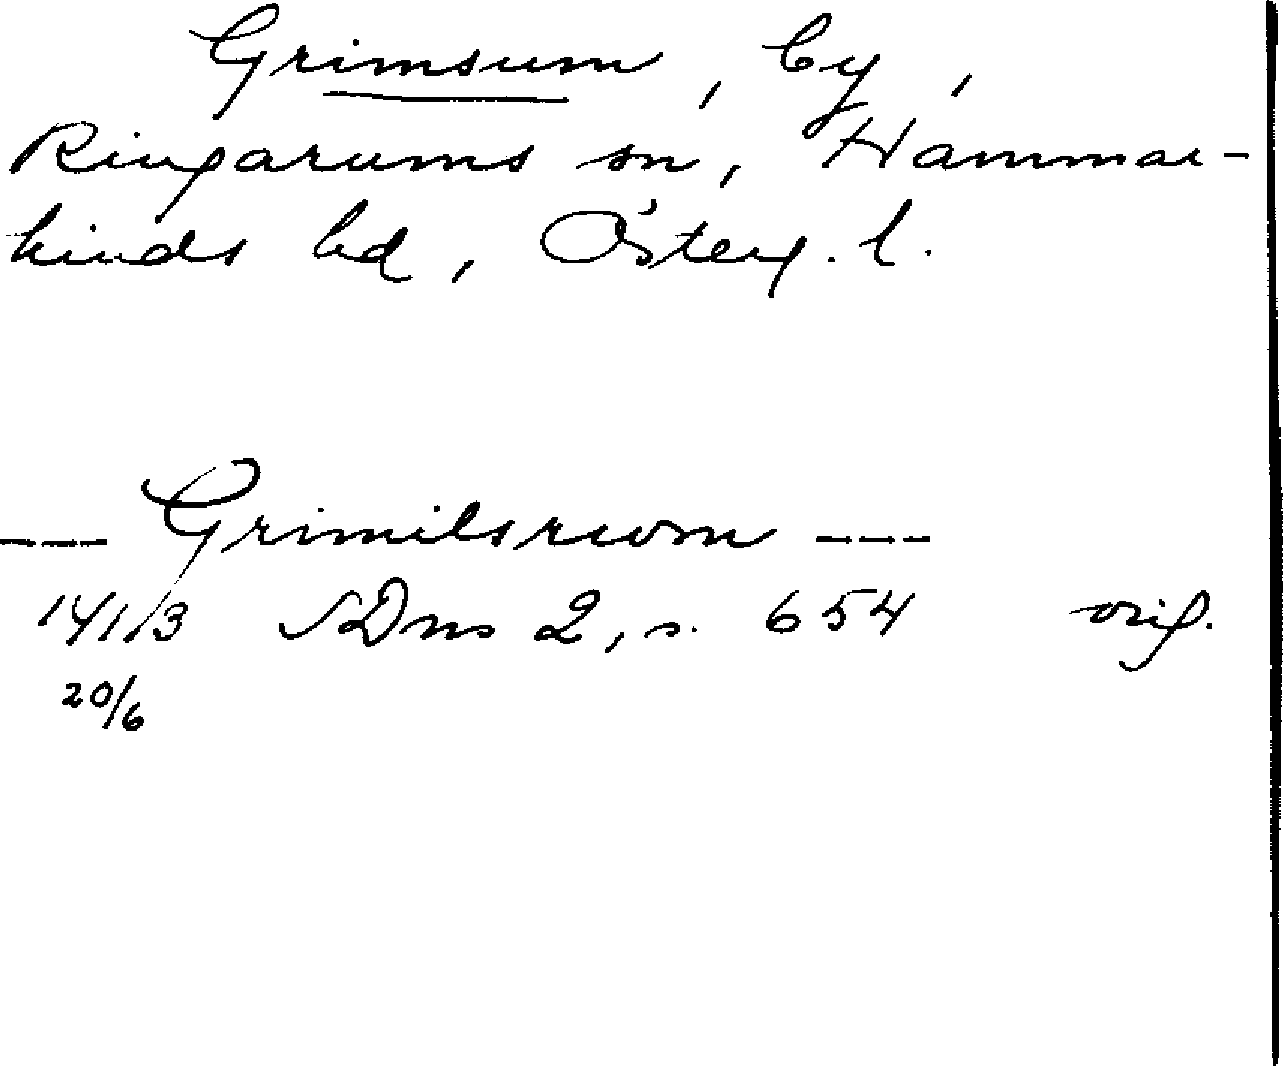 Grimsum, by,
Ringarums sn, Hammar-
kinds hd, Österg. l.
--- Grimilsrwm ---
1413 SDns 2, s. 654 orig.
20/6